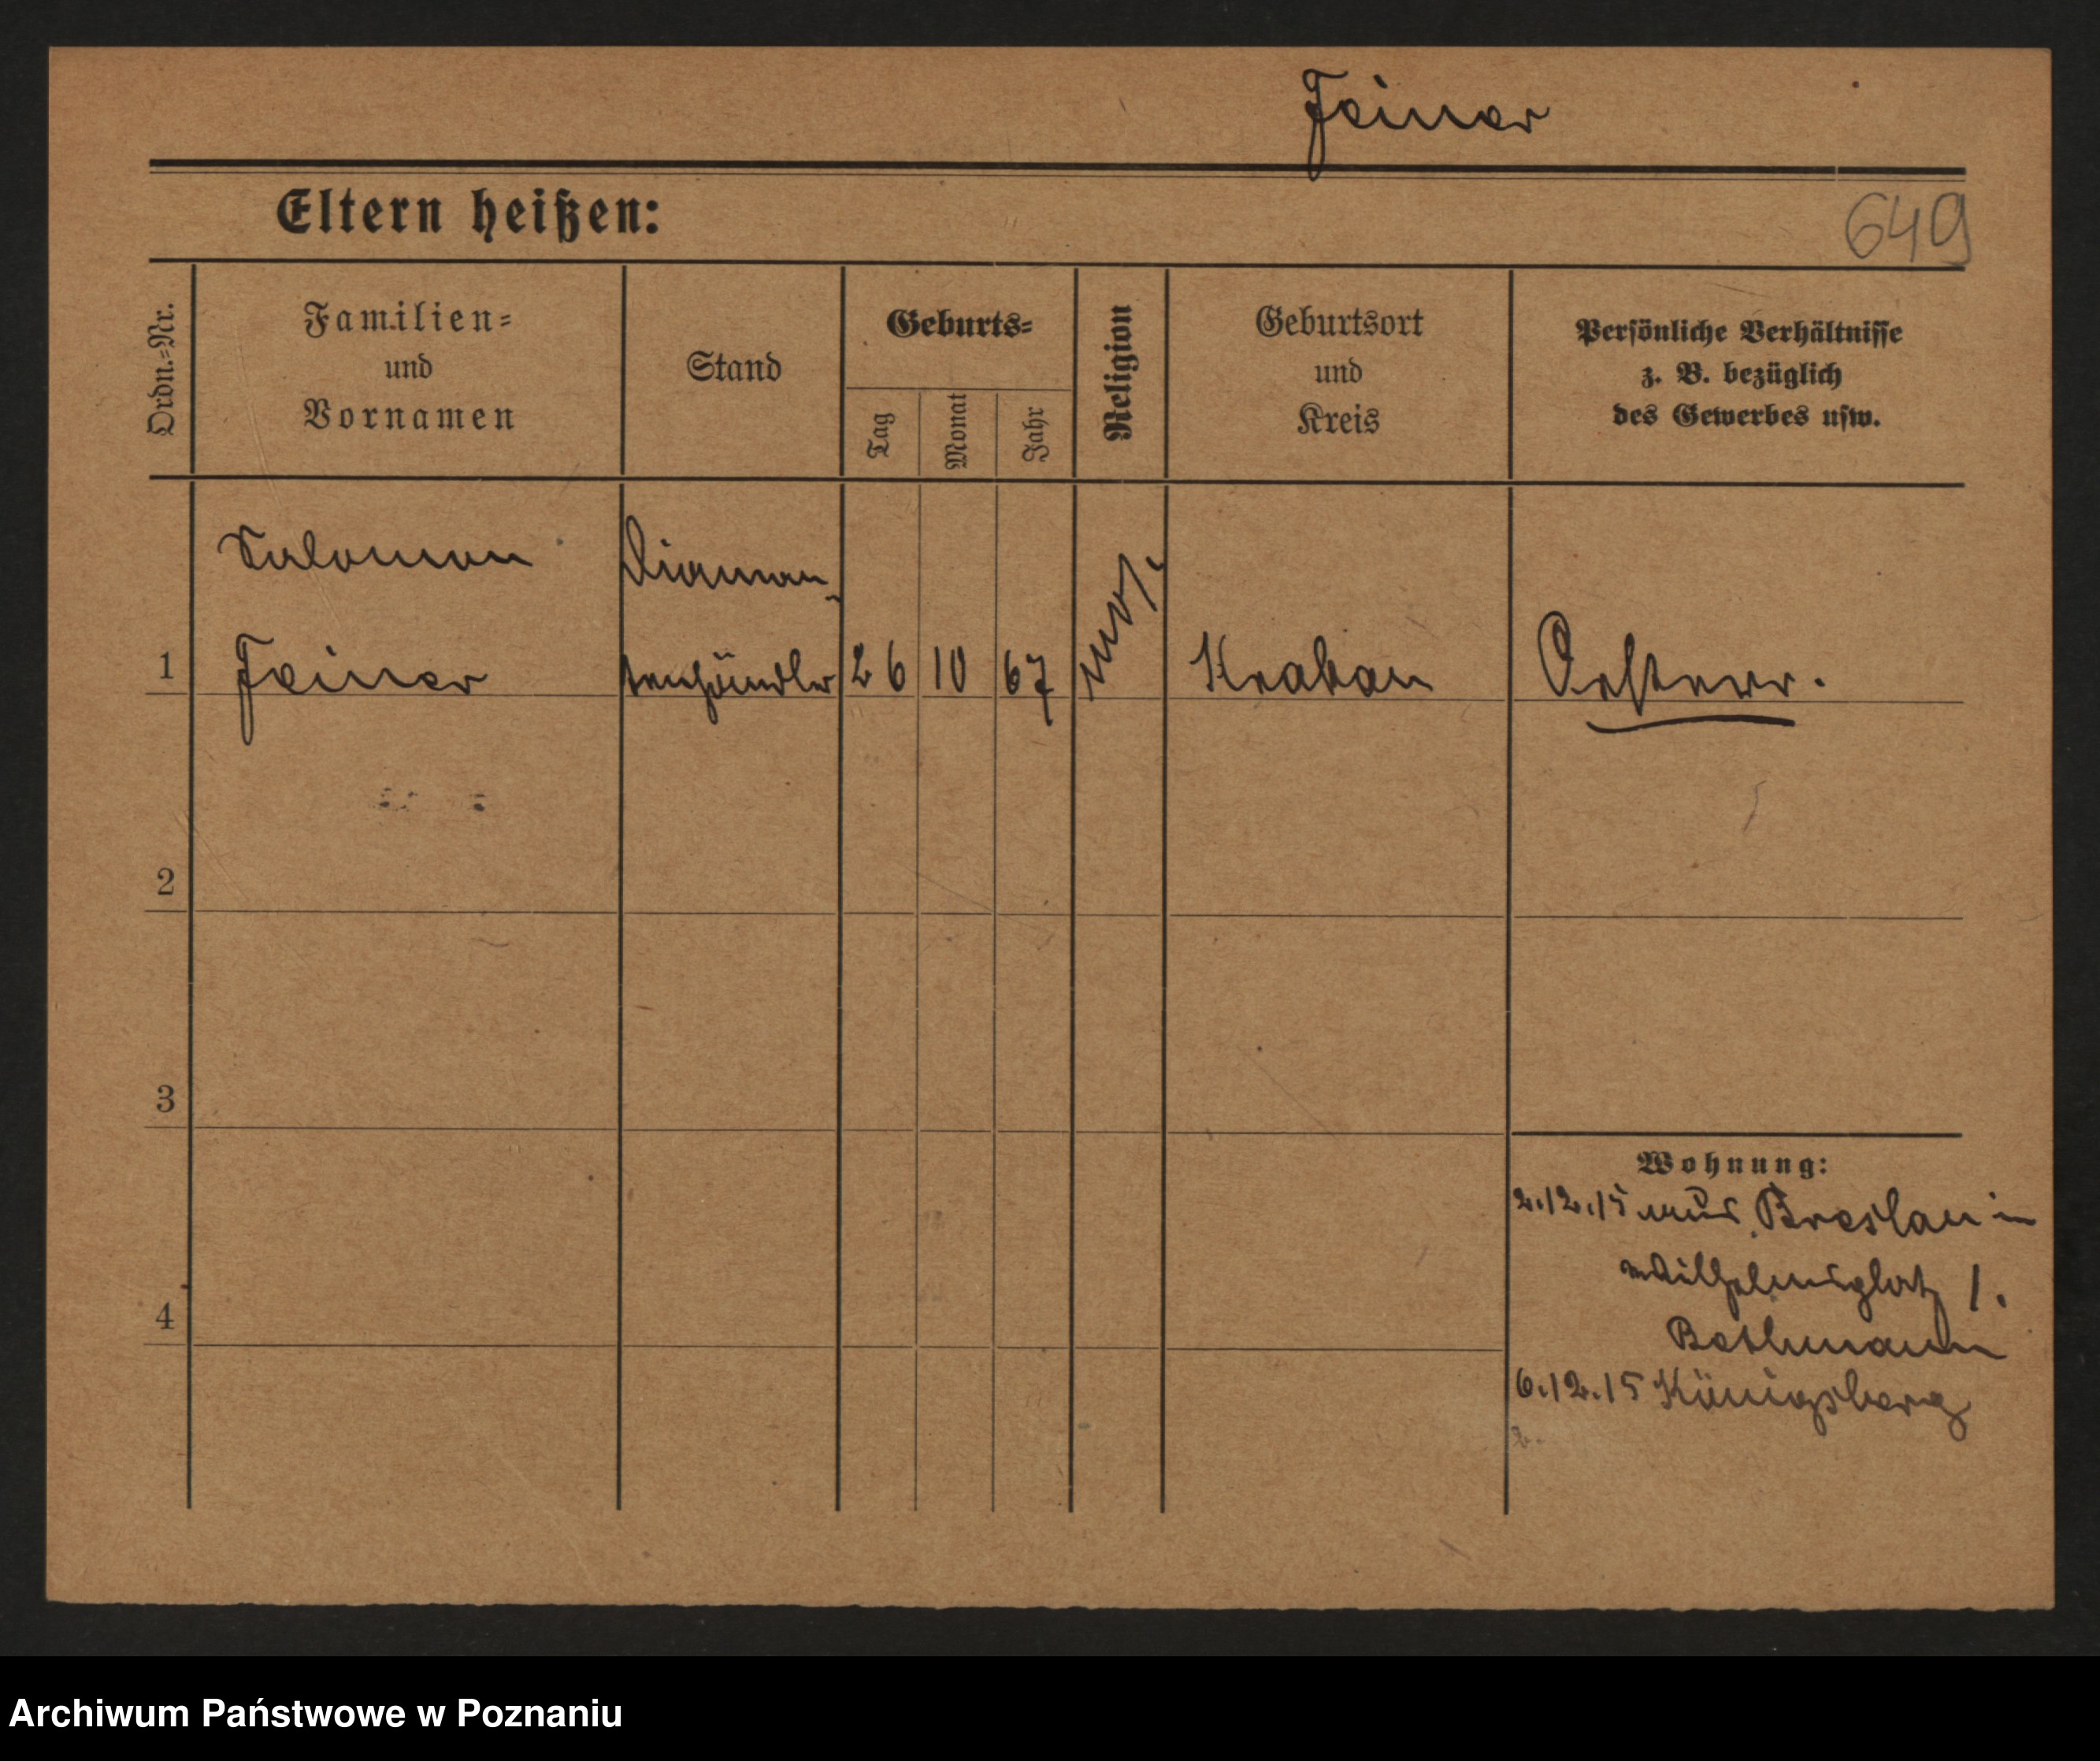 Feiner
Eltern heißen:
649
Ordn.-Nr.
Familien-
und
Vornamen
Stand
Geburts-
Tag
Monat
Jahr
Religion
Geburtsort
und
Kreis
Persönliche Verhältnisse
z. B. bezüglich
des Gewerbes usw.
Salomon
Diaman-
1 Feiner tenhändler 26 10 67 mos. Krakau Oesterr.
2
3
Wohnung:
2.12.15 aus Breslau in
Wilhelmsplatz 1.
4
Bethmann
6.12.15 Königsberg
Archiwum Państwowe w Poznaniu